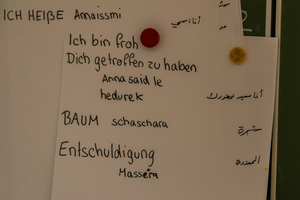 ICH HEIßE Amaissmi
أنا اسمي
Ich bin froh
Dich getroffen zu haben
Anna said le
hedurek
أنا سعيد لحضورك
BAUM schaschara
شجرة
Entschuldigung
Massera
المعذرة